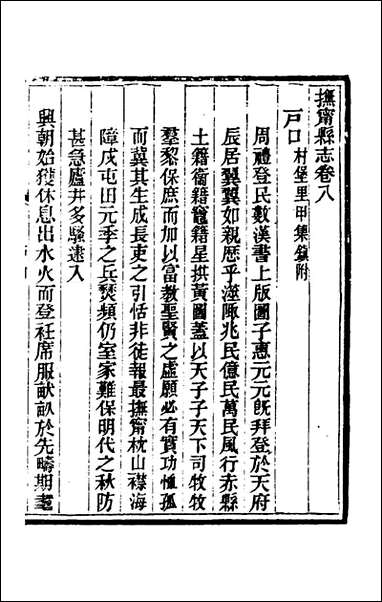 撫甯縣志卷八
戸口村堡里甲集鎭附
周禮登民數漢書上版圖子惠元元旣拜登於天府
辰居翼翼如親歷乎溼陬兆民億民萬民風行赤縣
土籍衞籍竈籍星拱黃圖蓋以天子子天下司牧牧
羣黎保庶而加以富敎聖賢之虛願必有實功恤孤
而冀其生成長吏之引恬非徒報最撫甯枕山襟海
障戍屯田元季之兵燹頻仍室家難保明代之秋防
甚急廬井多騷逮入
興朝始獲休息出水火而登衽席服畎畝於先疇期耄